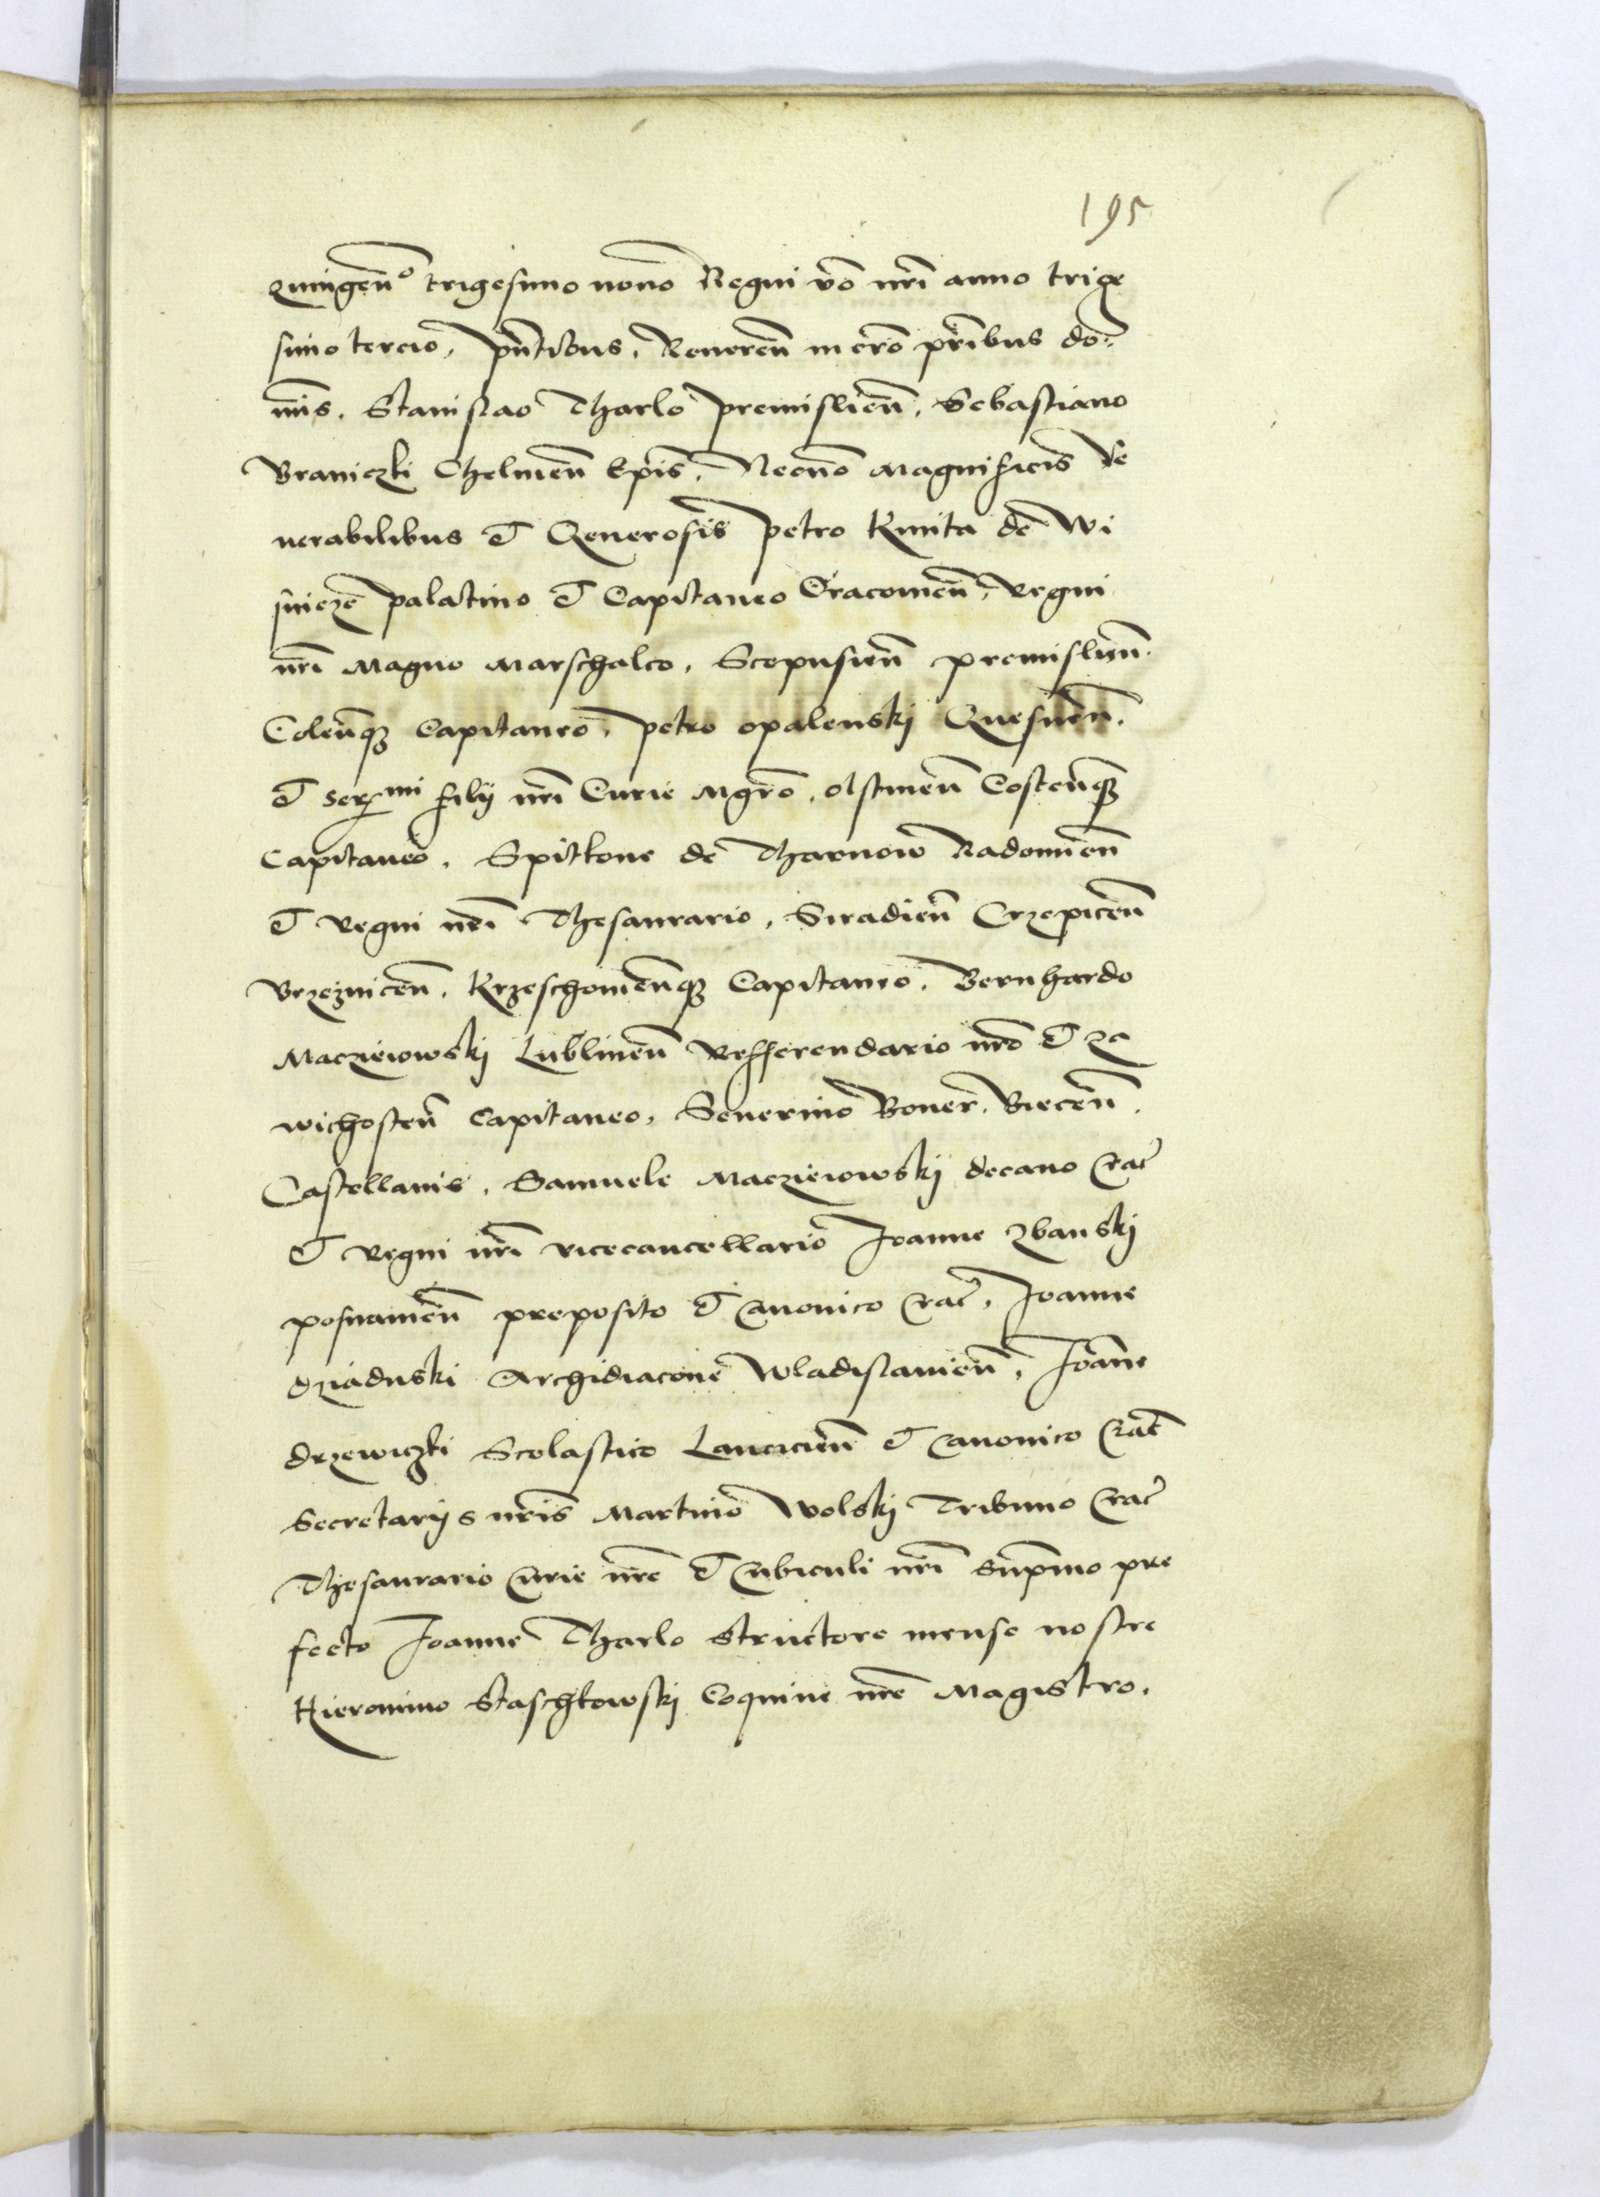 195
quingen͂o trigesimo nono Regni v͂o nr͂i anno trige
simo tercio, pn͂tibus, Reueren͂ in cr͂o pr͂ibus do͂-
nis. Stanislao Tharlo premislien͂, Sebastiano
Braniczki Chelmen͂ Ep͂is, Necno͂ Magnificis Ve
nerabilibus et Generosis petro kmita de Wi
snicze palatino et Capitaneo Cracouien͂, regni
nr͂i Magno Marschalco, Scepusien͂ premislien͂
Colen͂q3 Capitaneo, petro opalenski Gnesnen͂.
et ser^mi filij nr͂i Curie Mgr͂o, olstinen͂ Costen͂q3
Capitaneo, Spitkone de Tharnow Radomien͂
et regni nr͂i Thesaurario, Siradien͂ Crzepicen͂
Brzeznicen͂, krzeschouien͂q3 Capitaneo, Bernhardo
Macziejowski Lublinen͂ refferendario nr͂o et za
wichosten͂ Capitaneo, Seuerino Boner, Biecen͂,
Castellanis, Samuele Macziejowski decano Crac͂
et regni nr͂i vicecancellario Joanne zbanski
posnanien͂ preposito et Canonico Crac͂, Joanne
dziaduski Archidiacone Wladislauien͂, Joa͂ne
drzewiczki Scolastico Lancicien͂ et Canonico Crac͂
Secretarijs nr͂is Martino Wolski Tribuno Crac͂
Thesaurario Curie nr͂e et Cubiculi nr͂i sup͂mo pre
fecto Joanne Tharlo structore mense nostre
Hieronimo Staschkowski Coquine nr͂e Magistro.